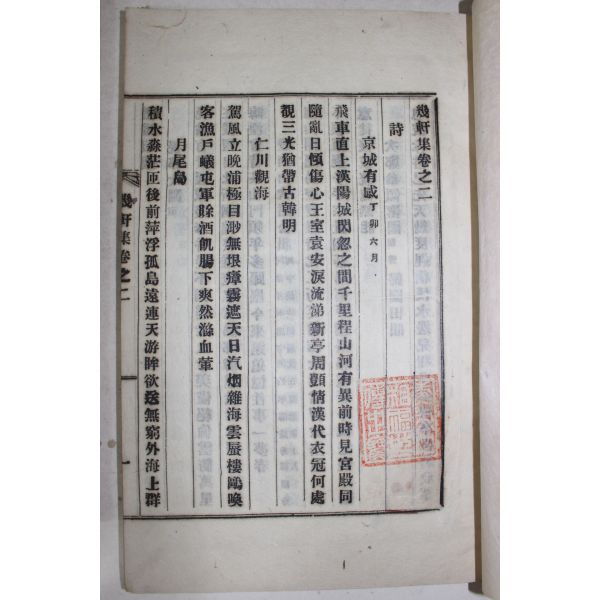 幾軒集卷之二
詩
京城有感 丁卯六月
飛車直上漢陽城閃忽之間千里程山河有異前時見宮殿同
隨亂日傾傷心王室袁安淚流涕新亭周顗情漢代衣冠何處
覩三光猶帶古韓明
仁川觀海
駕風立晚浦極目渺無垠瘴霧遮天日汽烟雜海雲蜃樓鷗喚
客漁戶蟻屯軍賖酒飢腸下爽然滌血葷
月尾島
積水淼茫匝後前萍浮孤島遠連天游眸欲送無窮外海上群
幾軒集卷之二
一